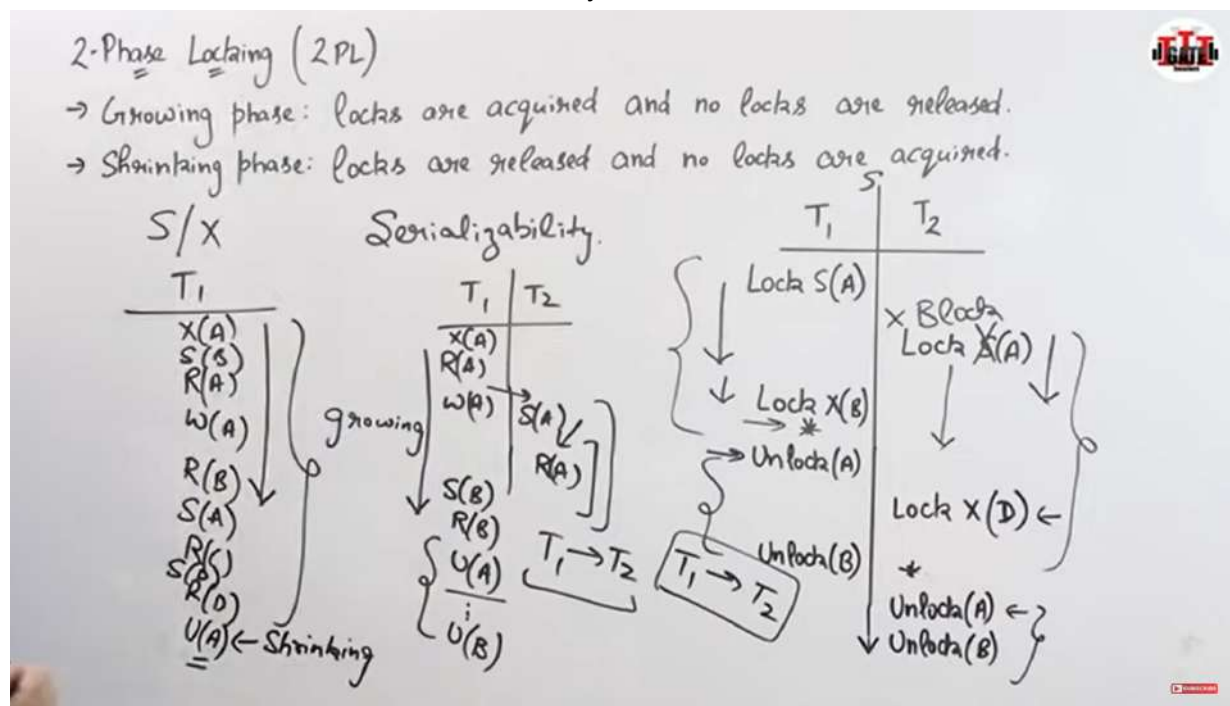 2-Phase Locking (2PL)
→ Growing phase: locks are acquired and no locks are released.
→ Shrinking phase: locks are released and no locks are acquired.
S/X
T1
X(A)
S(B)
R(A)
W(A)
R(B)
S(A)
R(C)
R(D)
U(A) ← Shrinking
growing
Serializability.
T1 | T2
X(A)
R(A)
W(A)
S(A)
R(A)
S(B)
R(B)
U(A)
U(B)
T1 → T2
T1 → T2
S
T1 | T2
Lock S(A)
X Block
Lock X(A)
Lock X(B)
→ *
→ Unlock(A)
Lock X(D) ←
Unlock(B)
*
Unlock(A) ←
Unlock(B)
GATE
SUBSCRIBE